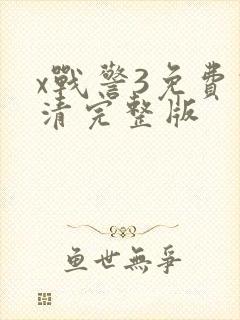 x戰警3免費
清完整版
鱼世無爭